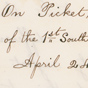 On Picket,
of the 1st South
April 24